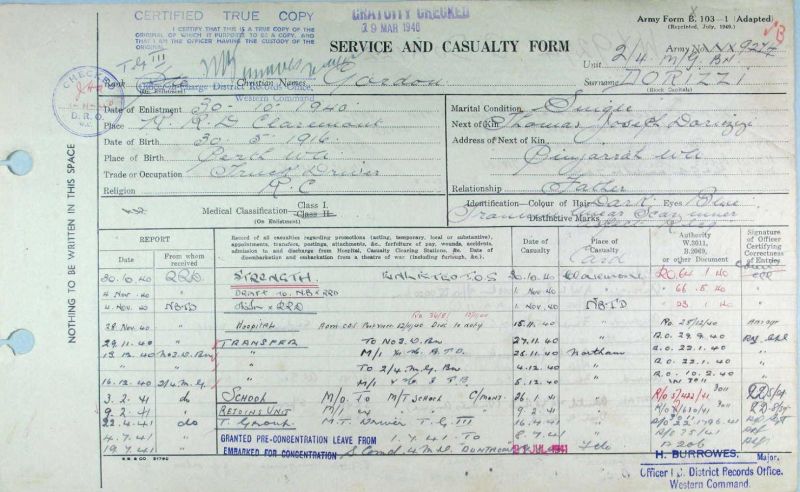 CERTIFIED TRUE COPY
I CERTIFY THAT THIS IS A TRUE COPY OF THE
ORIGINAL OF WHICH IT PURPORTS TO BE A COPY, AND
THAT I AM THE OFFICER HAVING THE CUSTODY OF THE
ORIGINAL
GRATUITY CHECKED
29 MAR 1946
Army Form B. 103—1 (Adapted)
(Reprinted, July, 1940.)
SERVICE AND CASUALTY FORM
Army No. WX 9274
Unit 2/4 M/G Bn
T.G III
Rank
Christian Names Gordon
Surname DORIZZI
(Block Capitals)
District Records Office,
Western Command.
CHECKED
D.R.O.
Date of Enlistment 30-10-1940
Place R.R.D Claremont
Date of Birth 30 5 1916
Place of Birth Perth WA
Trade or Occupation Truck Driver
Religion R.C
Marital Condition Single
Next of Kin Thomas Joseph Dorizzi
Address of Next of Kin
Pinjarrah WA
Relationship Father
Identification—Colour of Hair Dark Eyes Blue
Distinctive Marks Scar inner
Medical Classification Class I.
Class II.
(On Enlistment)
NOTHING TO BE WRITTEN IN THIS SPACE
REPORT
Date
From whom received
Record of all casualties regarding promotions (acting, temporary, local or substantive), appointments, transfers, postings, attachments, &c., forfeiture of pay, wounds, accidents, admission to and discharge from Hospital, Casualty Clearing Stations, &c. Date of disembarkation and embarkation from a theatre of war (including furlough, &c.).
Date of Casualty
Place of Casualty
Authority W.3011, B.2069, or other Document
Signature of Officer Certifying Correctness of Entries
30.10.40 RRD STRENGTH ENLISTED T.O.S 30.10.40 Claremont RO.64 1 40
4 Nov. 40 " DRAFT to N.B x RRD 1 Nov. 40 " 66.5.40
4 Nov. 40 N.B.T.D x RRD 1 Nov. 40 N.B.T.D " 23 1 40
28 Nov 40 " Hospital 15.11.40 " R.O 25/12/40
29.11.40 " TRANSFER To No3.W.Bn 27.11.40 R.O. 29.9.40
13.12.40 No3.W.Bn " M/I 26.11.40 Northam R.O. 22.1.40
" " To 2/4 M.G Bn 4.12.40 " R.O. 22.1.40
16.12.40 2/4 M.G. " M/I 5.12.40 " R.O. 10.2.40
3.2.41 do SCHOOL M/O To M/T School C/mont. 26.1.41 R/O 5/422/41
9.2.41 " REJOINS UNIT M/I ex " 9.2.41
22.4.41 do T. Group M.T. Driver T.G III 16.4.41
4.7.41 GRANTED PRE-CONCENTRATION LEAVE FROM 1.7.41 TO 8.7.41 R/O 75/41
19.7.41 EMBARKED FOR CONCENTRATION S Comd 4 M.D. JUL 1941 P206
S.B. & CO. 51792
H. BURROWES, Major,
Officer I/c. District Records Office.
Western Command.